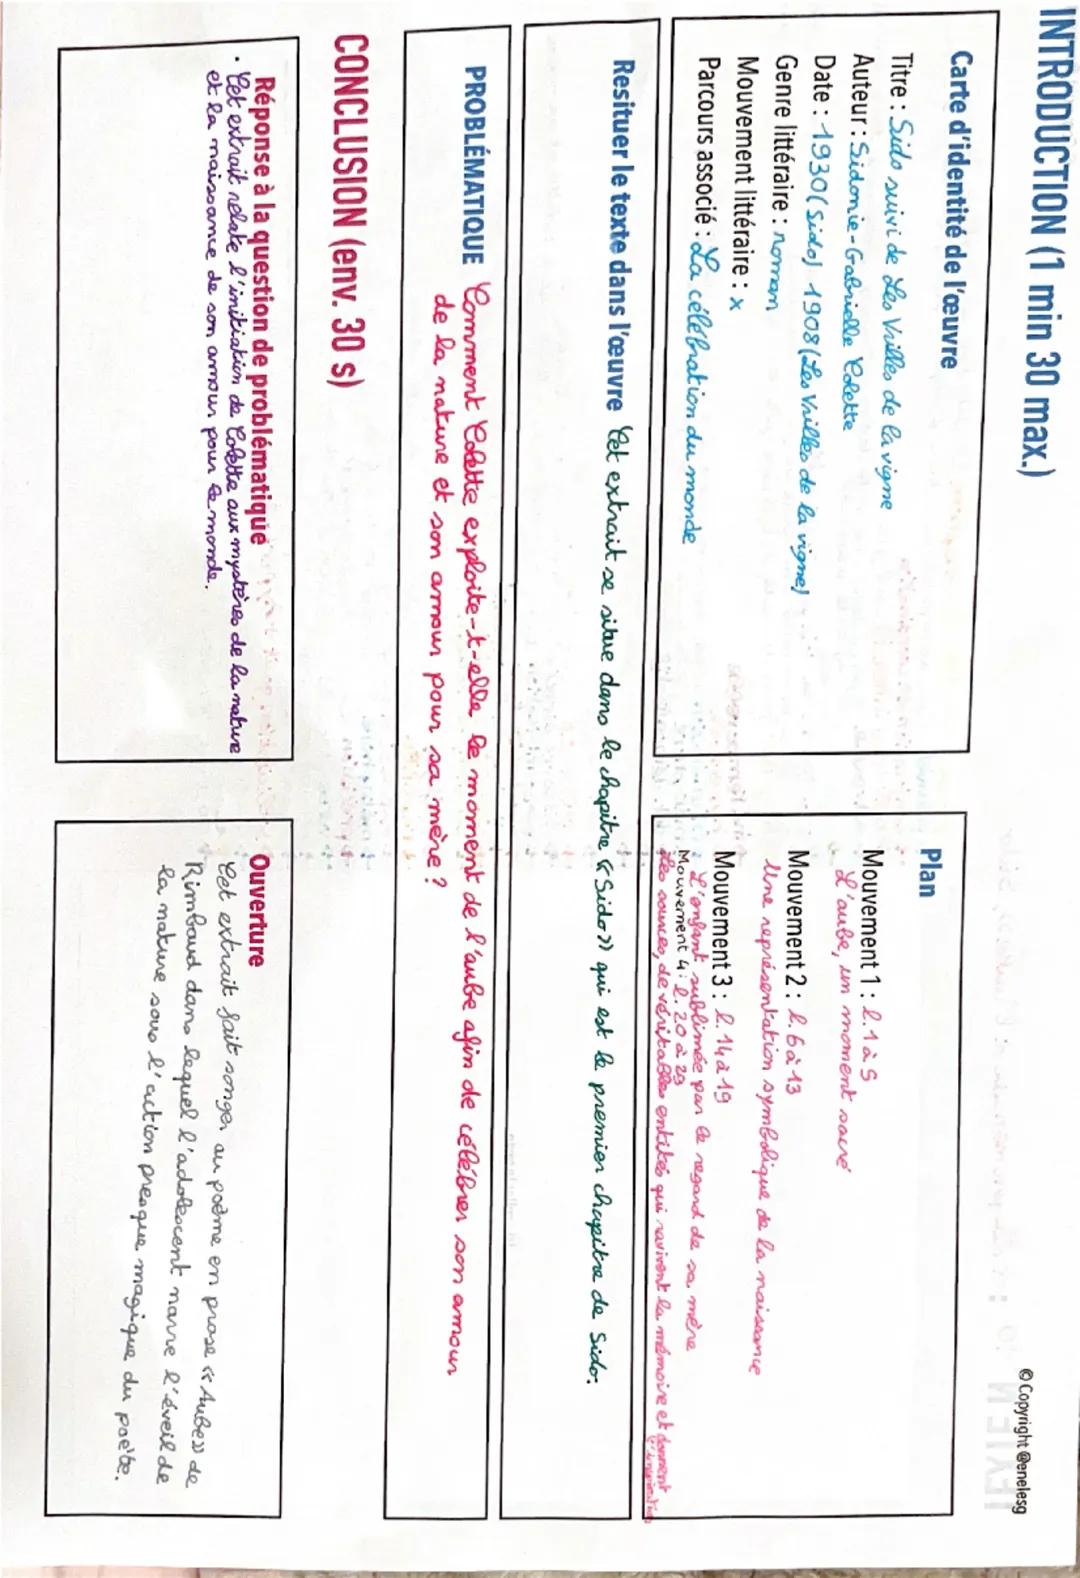 INTRODUCTION (1 min 30 max.)
© Copyright @enelesg
Carte d'identité de l'œuvre
Titre : Sido suivi de Les Vrilles de la vigne
Auteur : Sidonie-Gabrielle Colette
Date : 1930 (Sido) 1908 (Les Vrilles de la vigne)
Genre littéraire : roman
Mouvement littéraire : x
Parcours associé : La célébration du monde
Plan
Mouvement 1 : l. 1 à 5
L'aube, un moment sacré
Mouvement 2 : l. 6 à 13
Une représentation symbolique de la naissance
Mouvement 3 : l. 14 à 19
L'enfant sublimée par le regard de sa mère
Mouvement 4 : l. 20 à 29
Les sources, de véritables entités qui ravivent la mémoire et donnent
l'inspiration
Resituer le texte dans l'œuvre Cet extrait se situe dans le chapitre «Sido» qui est le premier chapitre de Sido.
PROBLÉMATIQUE Comment Colette exploite-t-elle le moment de l'aube afin de célébrer son amour
de la nature et son amour pour sa mère ?
CONCLUSION (env. 30 s)
Réponse à la question de problématique
• Cet extrait relate l'initiation de Colette aux mystères de la nature
et la naissance de son amour pour le monde.
Ouverture
Cet extrait fait songer au poème en prose «Aube» de
Rimbaud dans lequel l'adolescent narre l'éveil de
la nature sous l'action presque magique du poète.